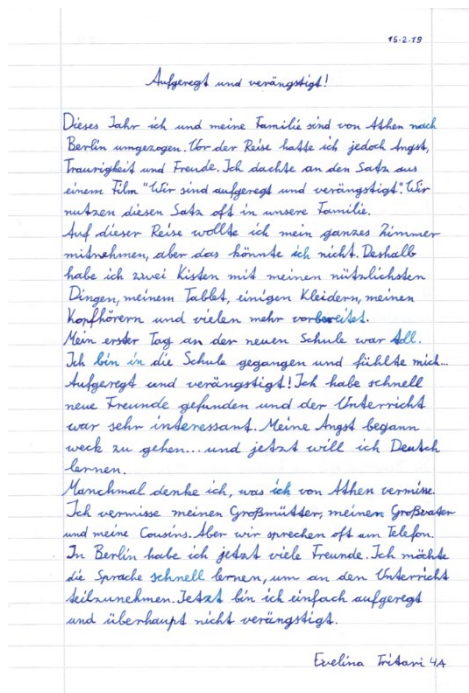 15.2.19
Aufgeregt und verängstigt!
Dieses Jahr ich und meine Familie sind von Athen nach
Berlin umgezogen. Vor der Reise hatte ich jedoch Angst,
Traurigkeit und Freude. Ich dachte an den Satz aus
einem Film "Wir sind aufgeregt und verängstigt". Wir
nutzen diesen Satz oft in unsere Familie.
Auf dieser Reise wollte ich mein ganzes Zimmer
mitnehmen, aber das könnte ich nicht. Deshalb
habe ich zwei Kisten mit meinen nützlichsten
Dingen, meinem Tablet, einigen Kleidern, meinen
Kopfhörern und vielen mehr vorbereitet.
Mein erster Tag an der neuen Schule war toll.
Ich bin in die Schule gegangen und fühlte mich...
Aufgeregt und verängstigt! Ich habe schnell
neue Freunde gefunden und der Unterricht
war sehr interessant. Meine Angst begann
weck zu gehen... und jetzt will ich Deutch
lernen.
Manchmal denke ich, was ich von Athen vermisse.
Ich vermisse meinen Großmütter, meinen Großvater
und meine Cousins. Aber wir sprechen oft am Telefon.
In Berlin habe ich jetzt viele Freunde. Ich möchte
die Sprache schnell lernen, um an den Unterricht
teilzunehmen. Jetzt bin ich einfach aufgeregt
und überhaupt nicht verängstigt.
Evelina Tritari 4A